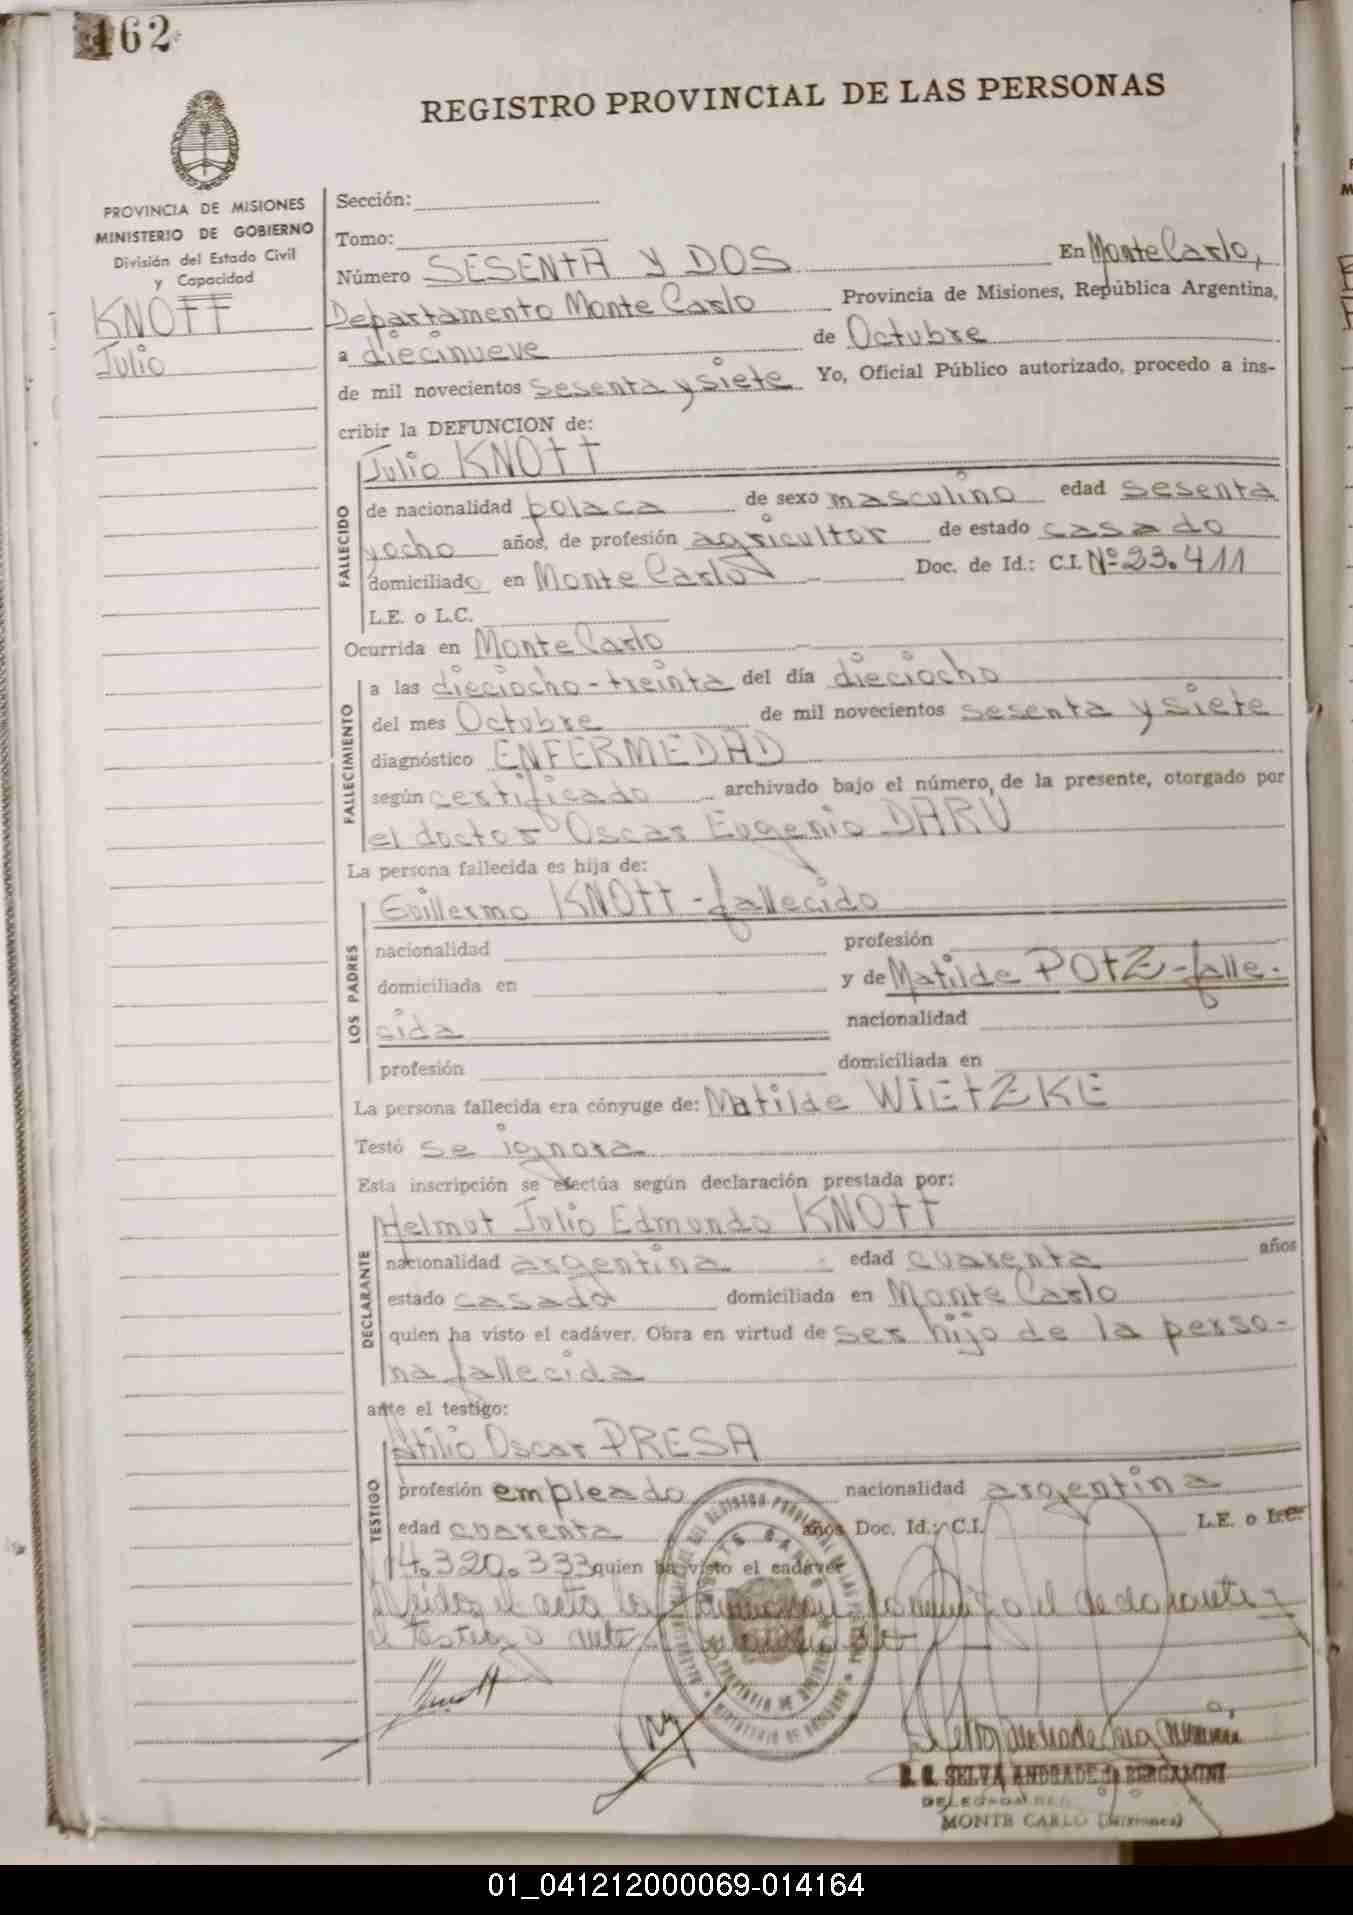 162
REGISTRO PROVINCIAL DE LAS PERSONAS
PROVINCIA DE MISIONES
MINISTERIO DE GOBIERNO
División del Estado Civil
y Capacidad
KNOTT
Julio
Sección:
Tomo:
Número SESENTA Y DOS En Monte Carlo,
Departamento Monte Carlo Provincia de Misiones, República Argentina,
a diecinueve de Octubre
de mil novecientos sesenta y siete Yo, Oficial Público autorizado, procedo a ins-
cribir la DEFUNCION de:
Julio KNOTT
FALLECIDO
de nacionalidad polaca de sexo masculino edad sesenta
yocho años, de profesión agricultor de estado casado
domiciliado en Monte Carlo Doc. de Id.: C.I. Nº 23.411
L.E. o L.C.
Ocurrida en Monte Carlo
FALLECIMIENTO
a las dieciocho-treinta del día dieciocho
del mes Octubre de mil novecientos sesenta y siete
diagnóstico ENFERMEDAD
según certificado archivado bajo el número, de la presente, otorgado por
el doctor Oscar Eugenio DARU
La persona fallecida es hija de:
LOS PADRES
Guillermo KNOTT - fallecido
nacionalidad profesión
domiciliada en y de Matilde POTZ - falle-
cida nacionalidad
profesión domiciliada en
La persona fallecida era cónyuge de: Matilde WIETZKE
Testó se ignora
Esta inscripción se efectúa según declaración prestada por:
DECLARANTE
Helmut Julio Edmundo KNOTT
nacionalidad argentina edad cuarenta años
estado casado domiciliada en Monte Carlo
quien ha visto el cadáver. Obra en virtud de ser hijo de la perso-
na fallecida
ante el testigo:
TESTIGO
Atilio Oscar PRESA
profesión empleado nacionalidad argentina
edad cuarenta años Doc. Id.: C.I. L.E. o L.C.
4.320.333 quien ha visto el cadáver
el acta la el declarante y
el testigo ante
SELVA ANDRADE de BERGAMINI
DELEGADA
MONTE CARLO (Misiones)
01_041212000069-014164